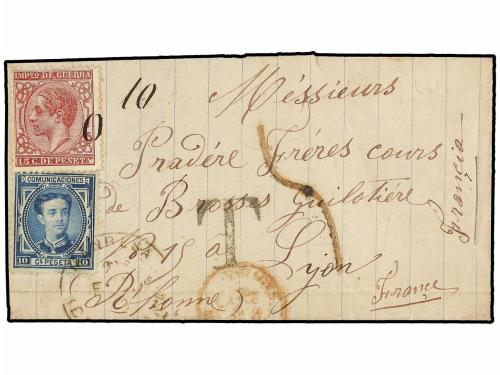 IMPTO. DE GUERRA
15 C. DE PESETA
COMUNICACIONES
10 CS PESETA 10
0 10
Méssieurs
Pradére Fréres cours
de Brosses Guilotiére
Nº 15 à Lyon
(Rhonne)
France
Francia
T